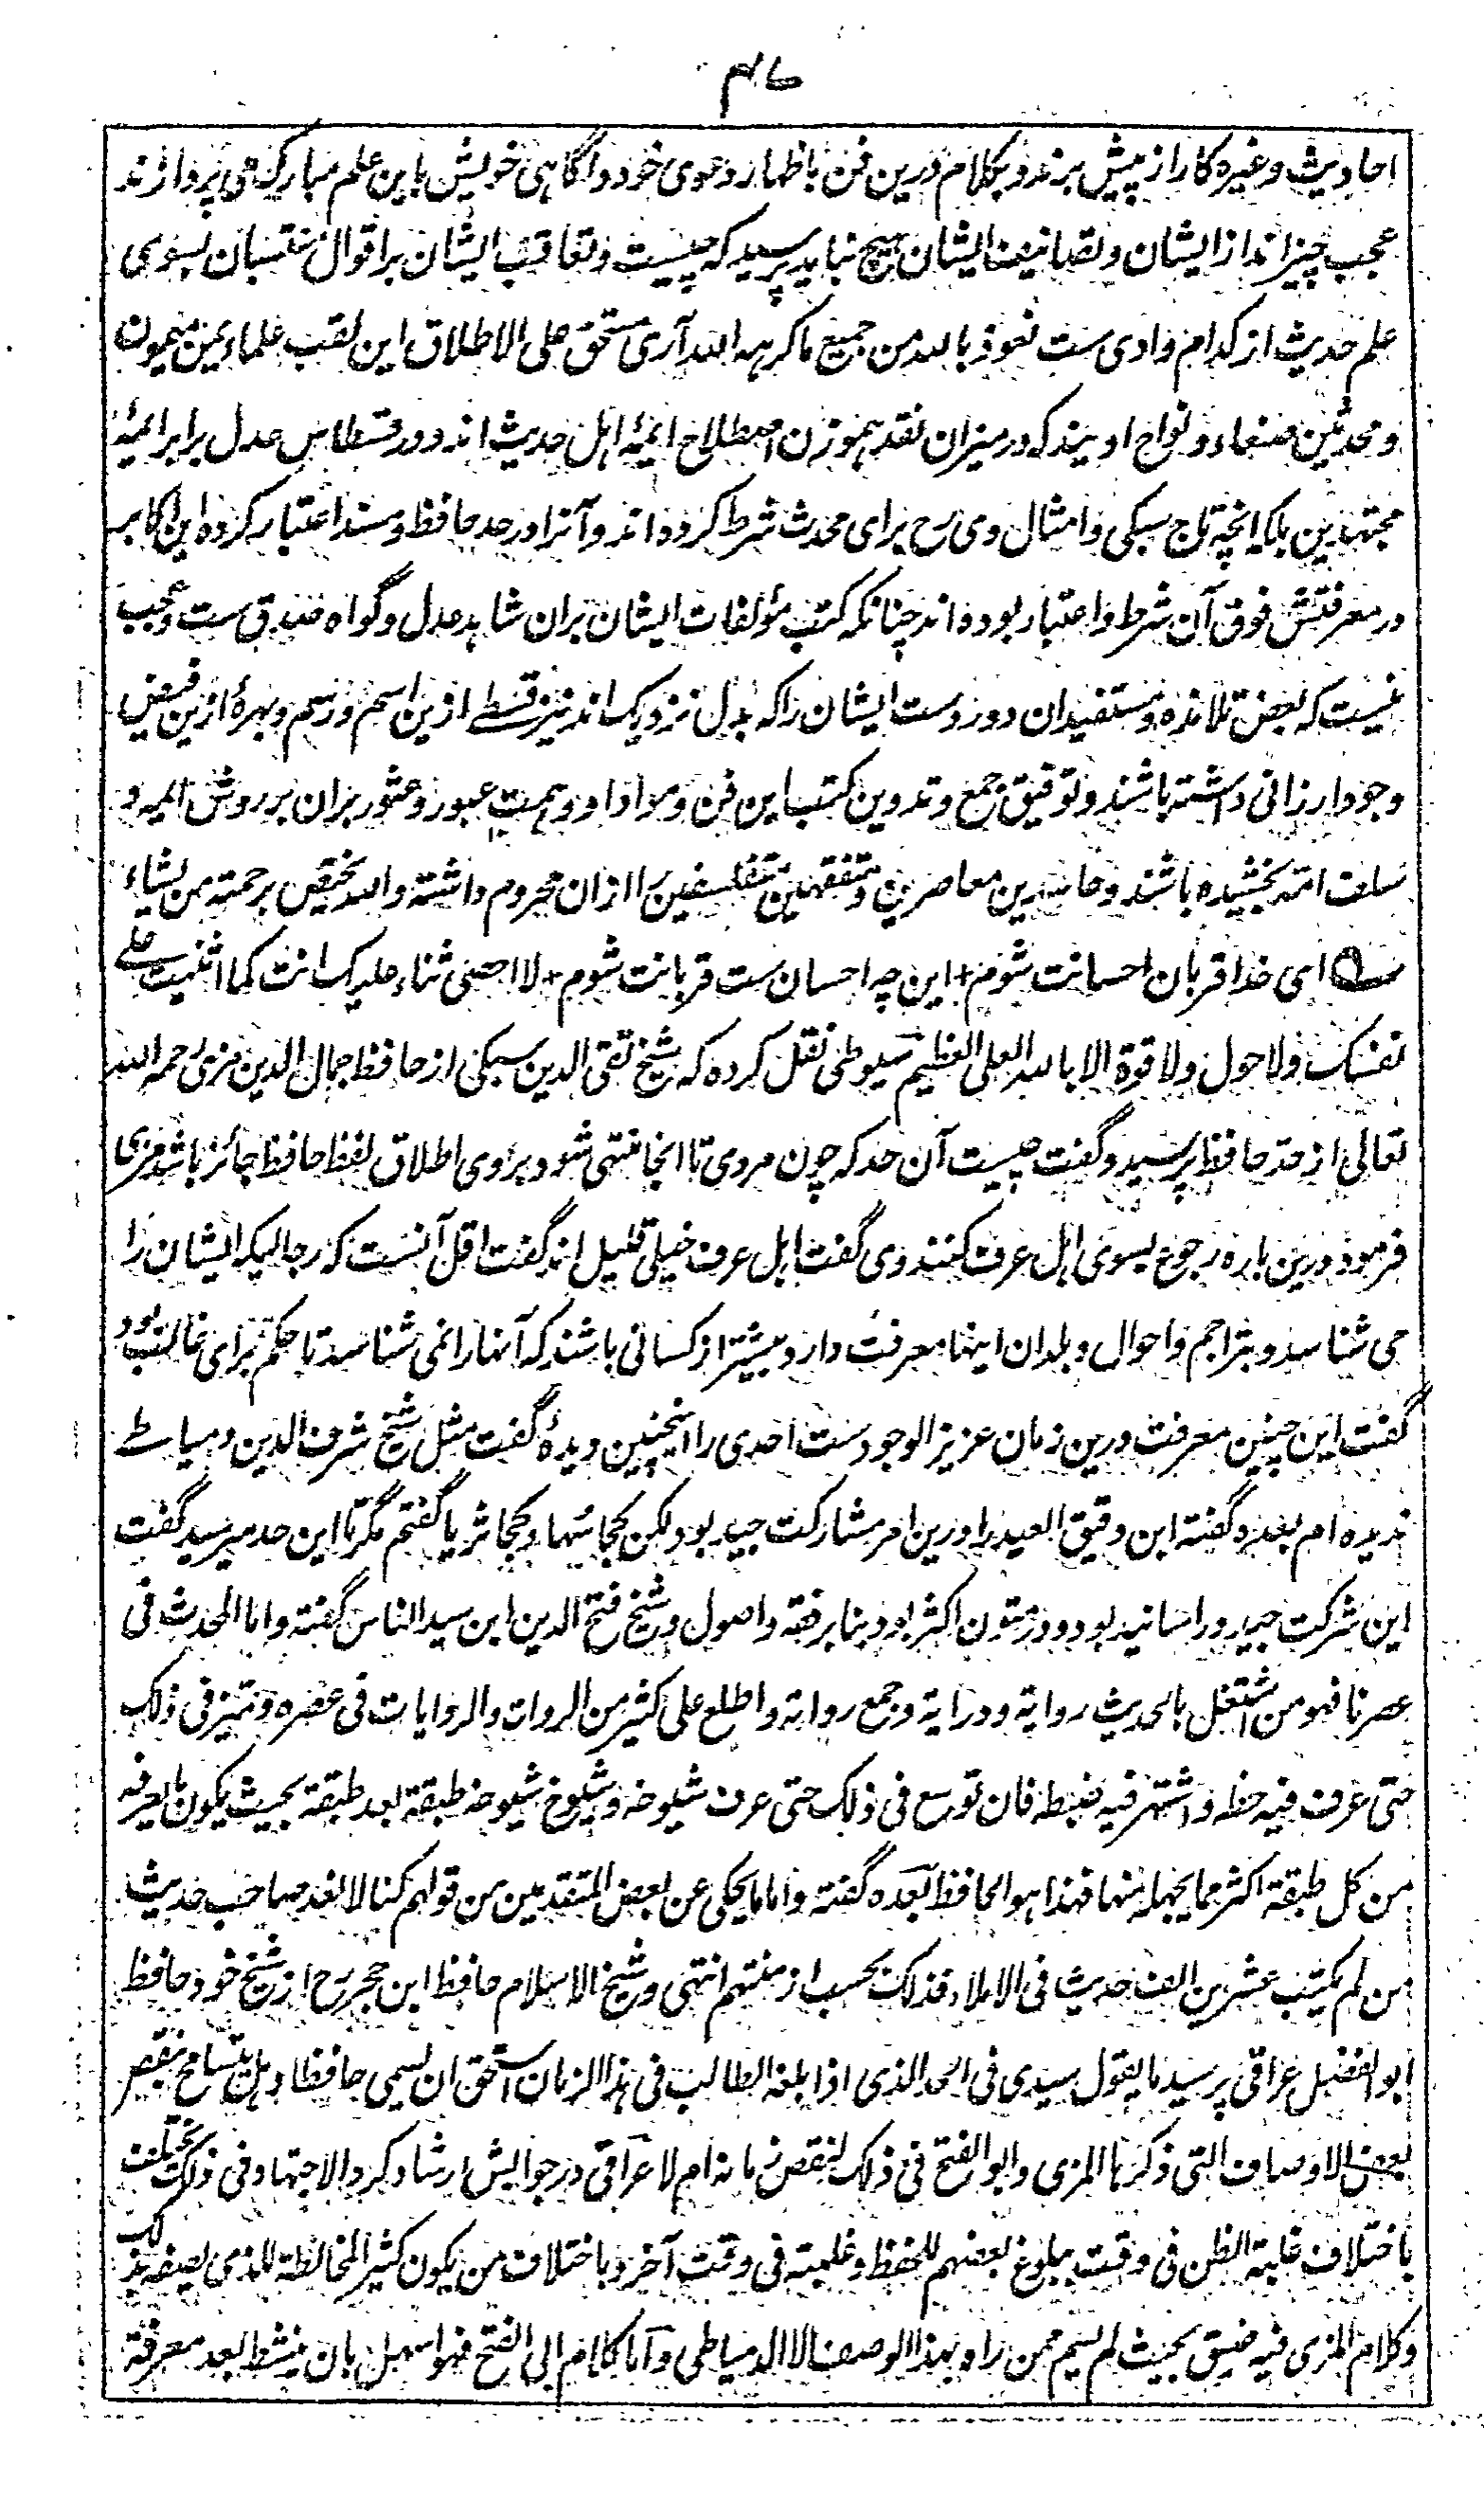 ۴۷
احادیث وغیره کار از پیش برند و بکلام درین فن باظهار دعوی خود و آگاهی خویش باین علم مبارک می پردازند
عجب چیز اند از ایشان و تصانیف ایشان هیچ نباید پرسید که چیست و تعاقب ایشان بر اقوال منتسبان بسوی
علم حدیث از کدام وادی ست نعوذ بالله من جمیع ما کرهه الله آری مستحق علی الاطلاق این لقب علماء یمن میمون
و محدثین صنعاء و نواح اویند که در میزان نقد هموزن اصطلاح ائمهٔ اهل حدیث اند و در قسطاس عدل برابر ائمهٔ
مجتهدین بلکه انچه تاج سبکی و امثال وی رح برای محدث شرط کرده اند و آنرا در حد حافظ و مسند اعتبار کرده این اکابر
در معرفتش فوق آن شرط و اعتبار بوده اند چنانکه کتب مؤلفات ایشان بران شاهد عدل و گواه صدق ست و عجب
نیست که بعض تلامذه و مستفیدان دوردست ایشان را که بدل نزدیک اند نیز قسطے ازین اسم و رسم و بهرهٔ ازین فیض
وجود ارزانی داشته باشند و توفیق جمع و تدوین کتب این فن و مواد او و همت عبور و عثور بران بر روش ائمه و
سلف امة بخشیده باشند و حاسدین معاصرین و متفقهین متفلسفین را ازان محروم داشته والله یختص برحمته من یشاء
ے ای خدا قربان احسانت شوم + این چه احسان ست قربانت شوم + لا احصی ثناء علیک انت کما اثنیت علے
نفسک ولا حول ولا قوة الا بالله العلی العظیم سیوطی نقل کرده که شیخ تقی الدین سبکی از حافظ جمال الدین مزی رحمه الله
تعالی از حد حافظ پرسید و گفت چیست آن حد که چون مردی تا انجا منتهی شود بروی اطلاق لفظ حافظ جائز باشد مزی
فرمود درین باره رجوع بسوی اهل عرف کنند وی گفت اهل عرف خیلی قلیل اند گفت اقل آنست که رجالیکه ایشان را
می شناسد و بتراجم و احوال و بلدان اینها معرفت دارد بیشتر از کسانی باشند که آنها را نمی شناسد تا حکم برای غالب بود
گفت این چنین معرفت درین زمان عزیز الوجود ست احدی را اینچنین دیدهٔ گفت مثل شیخ شرف الدین دمیاطے
ندیده ام بعده گفته ابن دقیق العید را درین امر مشارکت جید بود لکن کجا سها و کجا ثریا گفتم مگر تا این حد میرسید گفت
این شرکت جید در اسانید بود و در متون اکثر بود بنابر فقه و اصول و شیخ فتح الدین ابن سید الناس گفته واما المحدث فی
عصرنا فهو من اشتغل بالحدیث روایة و درایة و جمع رواته و اطلع علی کثیر من الروات والروایات فی عصره و تمیز فی ذلک
حتی عرف فیه حظه و اشتهر فیه ضبطه فان توسع فی ذلک حتی عرف شیوخه و شیوخ شیوخه طبقة بعد طبقة بحیث یکون ما یعرفه
من کل طبقة اکثر مما یجهله منها فهذا هو الحافظ بعده گفته واما ما یحکی عن بعض المتقدمین من قولهم کنا لا نعد صاحب حدیث
من لم یکتب عشرین الف حدیث فی الاملاء فذلک بحسب ازمنتهم انتهی و شیخ الاسلام حافظ ابن حجر رح از شیخ خود حافظ
ابو الفضل عراقی پرسید ما یقول سیدی فی الحد الذی اذا بلغه الطالب فی هذا الزمان استحق ان یسمی حافظا وهل یتسامح بنقص
بعض الاوصاف التی ذکرها المزی وابو الفتح فی ذلک لنقص زمانه ام لا عراقی در جوابش ارشاد کرد الاجتهاد فی ذلک یختلف
باختلاف غلبة الظن فی وقت ببلوغ بعضهم للحفظ وغلبته فی وقت آخر وباختلاف من یکون کثیر المخالطة للذی یصفه بذلک
وکلام المزی فیه ضیق بحیث لم یسم ممن رآه بهذا الوصف الا الدمیاطی واما کلام ابی الفتح فهو اسهل بان ینشط بعد معرفة